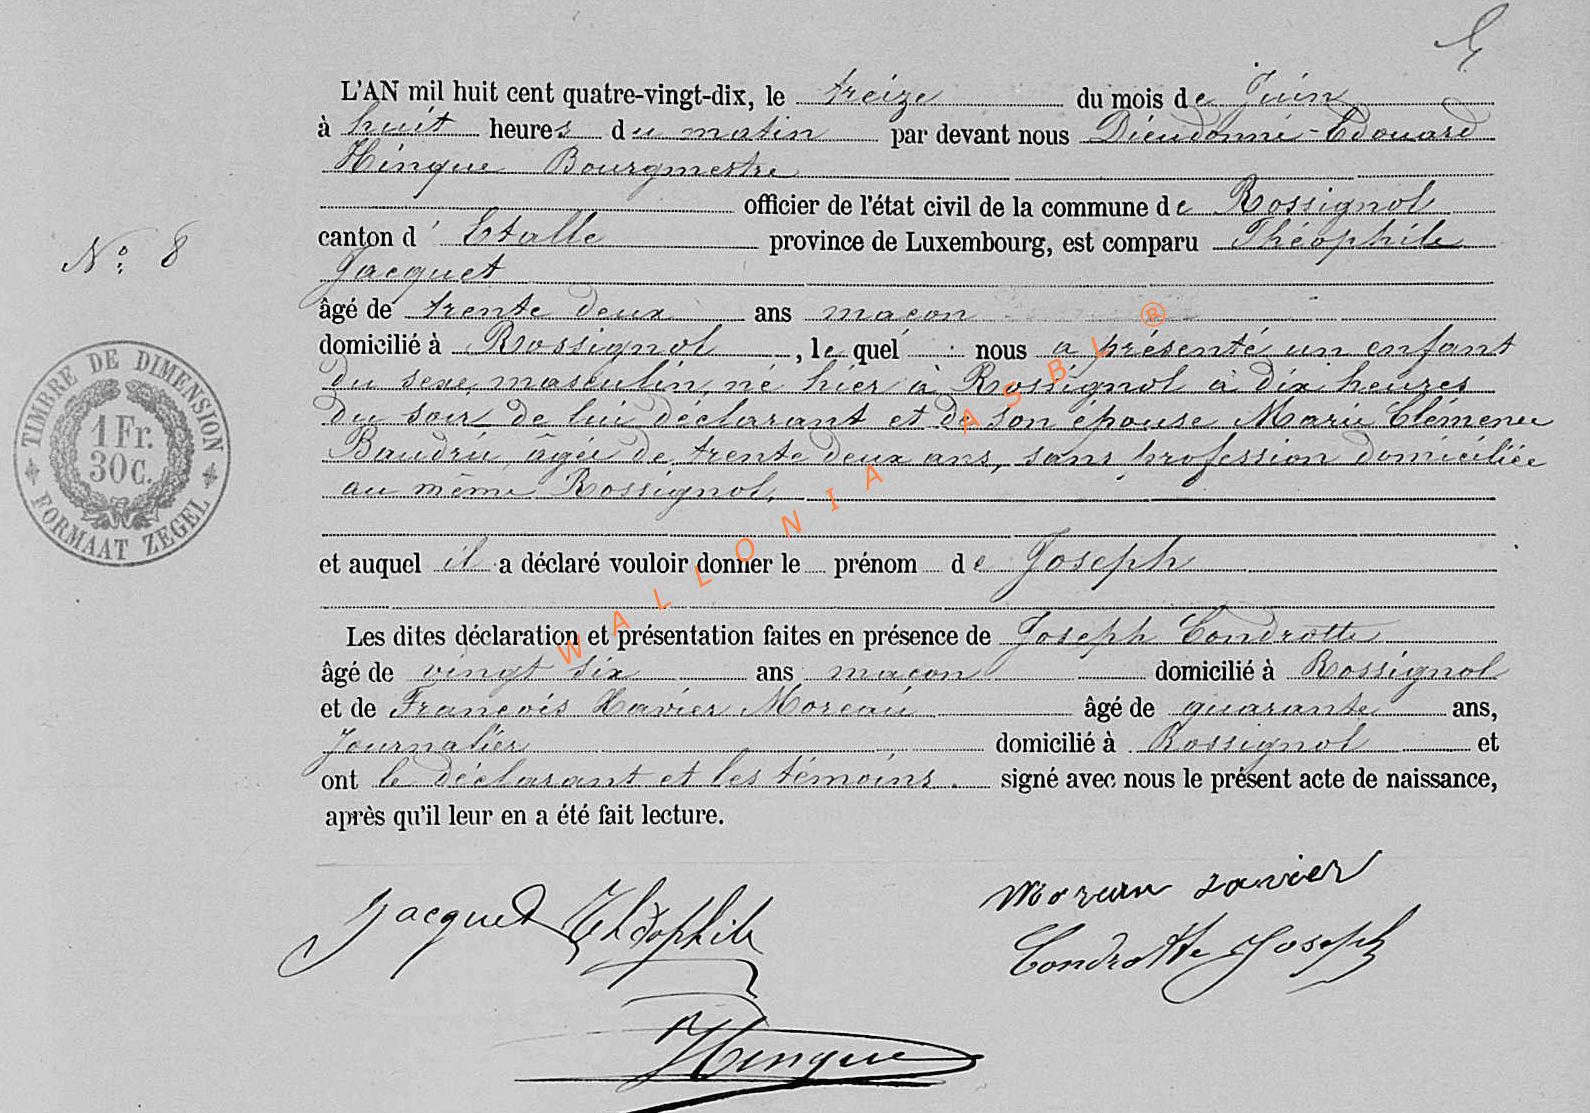 L'AN mil huit cent quatre-vingt-dix, le treize du mois de Juin
à huit heures du matin par devant nous Dieudonné-Edouard
Hinque Bourgmestre
officier de l'état civil de la commune de Rossignol
canton d'Etalle province de Luxembourg, est comparu Théophile
Jacquet
N° 8
âgé de trente deux ans maçon
domicilié à Rossignol, le quel nous a présenté un enfant
du sexe masculin né hier à Rossignol à dix heures
du soir de lui déclarant et de son épouse Marie Clémence
Baudru âgée de trente deux ans, sans profession domiciliée
au même Rossignol,
et auquel il a déclaré vouloir donner le prénom de Joseph
Les dites déclaration et présentation faites en présence de Joseph Condrotte
âgé de vingt six ans maçon domicilié à Rossignol
et de François Xavier Moreau âgé de quarante ans,
journalier domicilié à Rossignol et
ont le déclarant et les témoins. signé avec nous le présent acte de naissance,
après qu'il leur en a été fait lecture.
Jacquet Théophile
Moreau Xavier
Condrotte Joseph
Hinque
TIMBRE DE DIMENSION
1 Fr.
30 C.
FORMAAT ZEGEL
WALLONIA ASBL ®